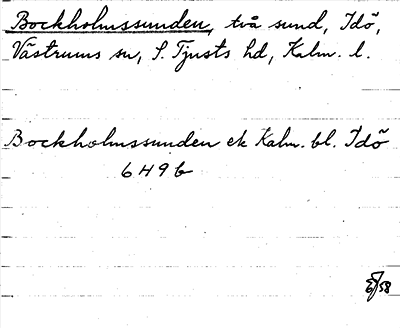 Bockholmssunden, två sund, Idö,
Västrums sn, S. Tjusts hd, Kalm. l.
Bockholmssunden ek Kalm. bl. Idö
649 b
58